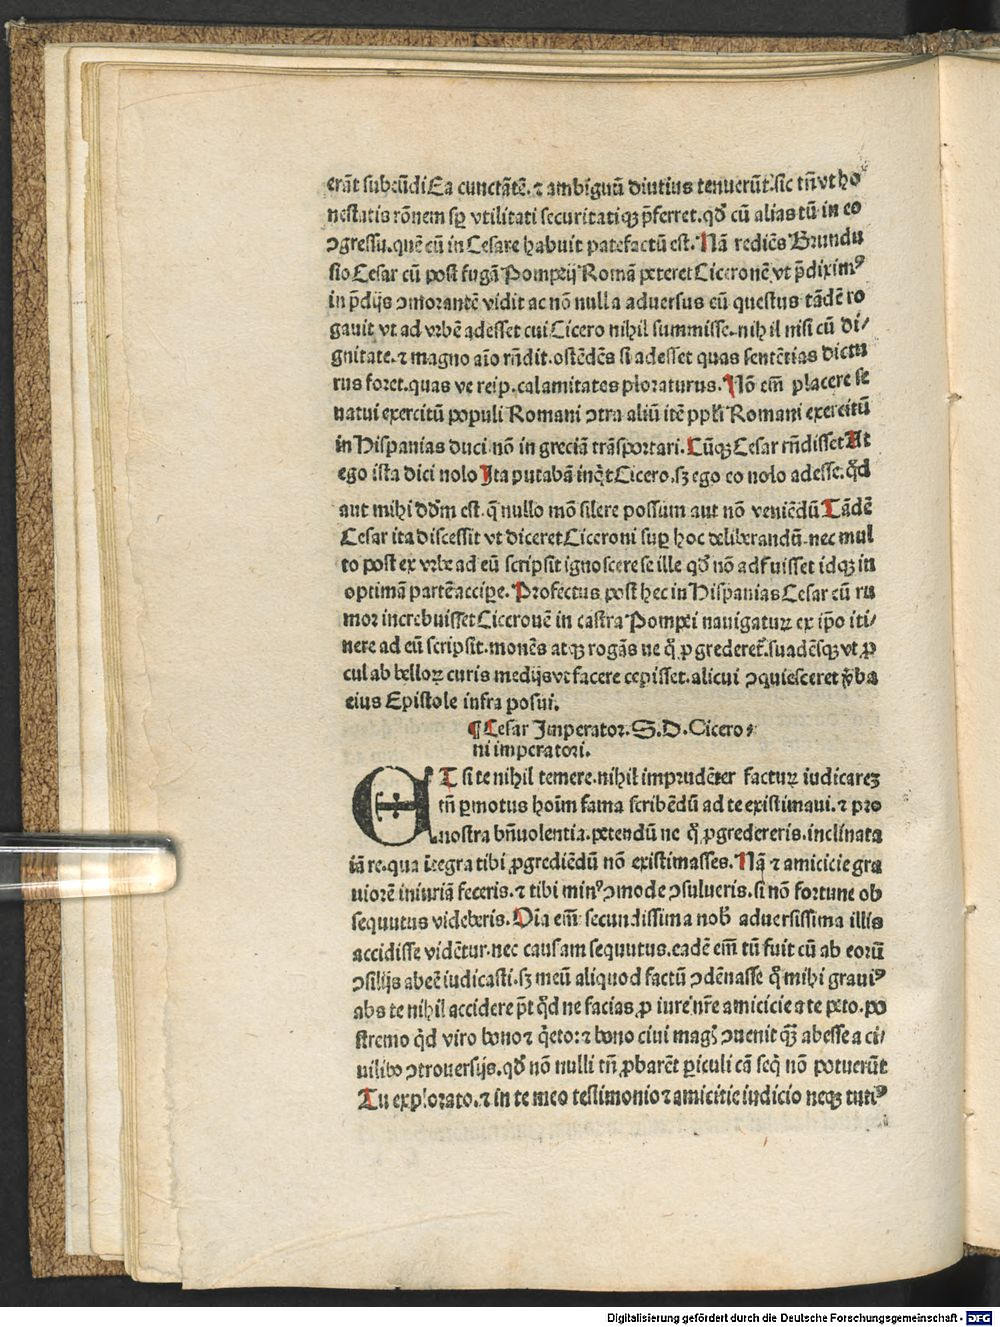 erãt subeũdi Ea cunctãtẽ. ⁊ ambiguũ diutius tenuerũt. sic tñ vt ho
nestatis rõnem sꝑ vtilitati securitatiqꝫ p̃ferret. qđ cũ alias tũ in eo
ↄgressu. quẽ cũ in Cesare habuit patefactũ est. Nã rediẽs Brundu
sio Cesar cũ post fugã Pompeij Romã peteret Ciceronẽ vt p̃diximꝰ
in p̃dijs ↄmorantẽ vidit ac nõ nulla aduersus eũ questus tãdẽ ro
gauit vt ad vrbẽ adesset cui Cicero nihil summisse. nihil nisi cũ di/
gnitate. ⁊ magno aĩo rñdit. ostẽdẽs si adesset quas sentẽtias dictu
rus foret. quas ve reip. calamitates ploraturus. Nõ em̃ placere se
natui exercitũ populi Romani ↄtra aliũ itẽ ppl̃i Romani exercitũ
in Hispanias duci. nõ in greciã trãsportari. Cũqꝫ Cesar rñdisset At
ego ista dici nolo Ita putabã inq̃t Cicero. sꝫ ego eo nolo adesse. q̃d
aut mihi dõm est. q̃ nullo mõ silere possum aut nõ veniẽdũ Tãdẽ
Cesar ita discessit vt diceret Ciceroni suꝑ hoc deliberandũ. nec mul
to post ex vrbe ad eũ scripsit ignoscere se ille qđ nõ adfuisset idqꝫ in
optimã partẽ accipe. Profectus post hec in Hispanias Cesar cũ ru
mor increbuisset Ciceronẽ in castra Pompei nauigaturꝫ ex ip̃o iti/
nere ad eũ scripsit. monẽs atqꝫ rogãs ne q̃ ꝓgrederet̃. suadẽsqꝫ vt ꝓ
cul ab bellorꝫ curis medijs vt facere cepisset. alicui ↄquiesceret ṽba
eius Epistole infra posui.
¶ Cesar Imperator. S. D. Cicero/
ni imperatori.
ET si te nihil temere. nihil imprudẽter facturꝫ iudicareꝫ
tñ ꝑmotus hoĩm fama scribẽdũ ad te existimaui. ⁊ pro
nostra bñuolentia. petendũ ne q̃ ꝓgredereris. inclinata
iã re. qua ĩtegra tibi ꝓgrediẽdũ nõ existimasses. Nã ⁊ amicicie gra
uiorẽ iniuriã feceris. ⁊ tibi minꝰ ↄmode ↄsulueris. si nõ fortune ob
sequutus videberis. Oĩa em̃ secundissima nob̃ aduersissima illis
accidisse vidẽtur. nec causam sequutus. eadẽ em̃ tũ fuit cũ ab eorũ
ↄsilijs abeẽ iudicasti. sꝫ meũ aliquod factũ ↄdẽnasse q̃ mihi grauiꝰ
abs te nihil accidere p̃t q̃d ne facias ꝓ iure nr̃e amicicie a te peto. po
stremo q̃d viro bono ⁊ q̃eto: ⁊ bono ciui mag̃ ↄuenit q̃ꝫ abesse a ci/
uilibo ↄtrouersijs. qđ nõ nulli tñ ꝓbarẽt ꝑiculi cã seq̃ nõ potuerũt
Tu explorato. ⁊ in te meo testimonio ⁊ amicitie iudicio neqꝫ tutiꝰ
Digitalisierung gefördert durch die Deutsche Forschungsgemeinschaft - DFG